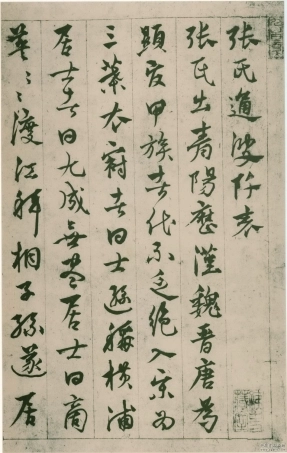 張氏通波阡表
張氏出青陽歷漢魏晉唐為
顯官甲族者代不乏絕入宋為
三葉衣冠者曰士遜稱橫浦
居士者曰九成無盡居士曰商
英〻渡江拜相子孫遂居